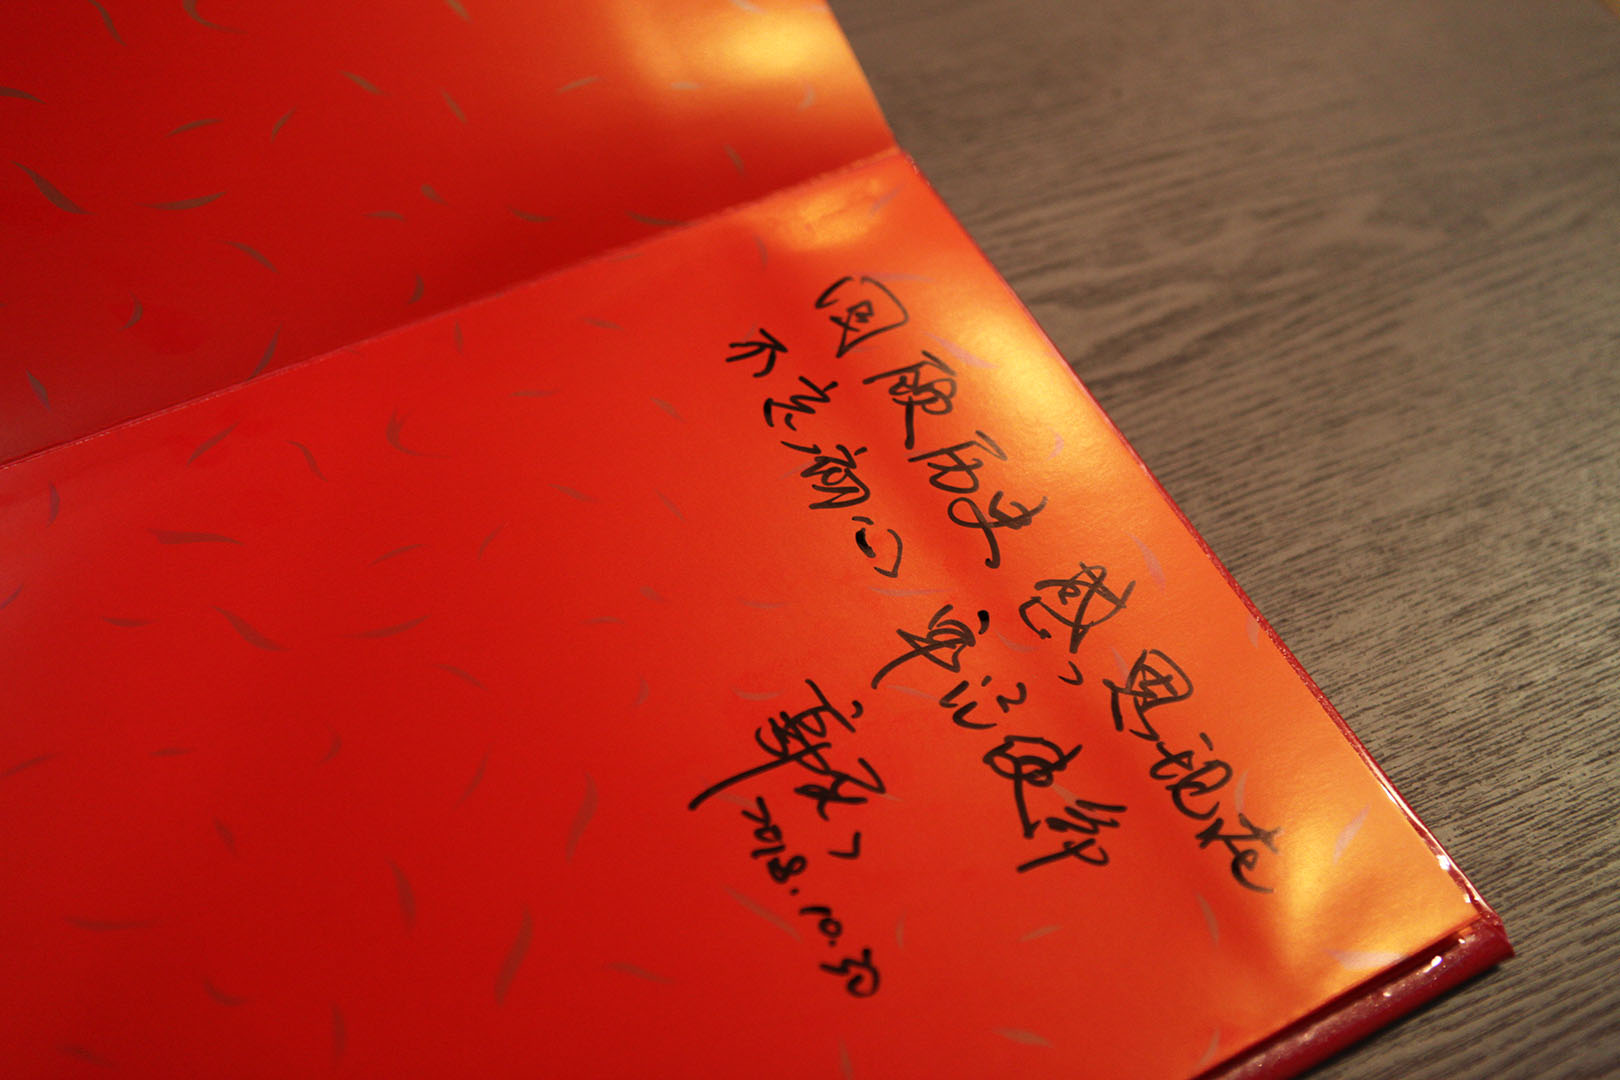 回顾历史,感恩现在
不忘初心 牢记使命
2018.10.23